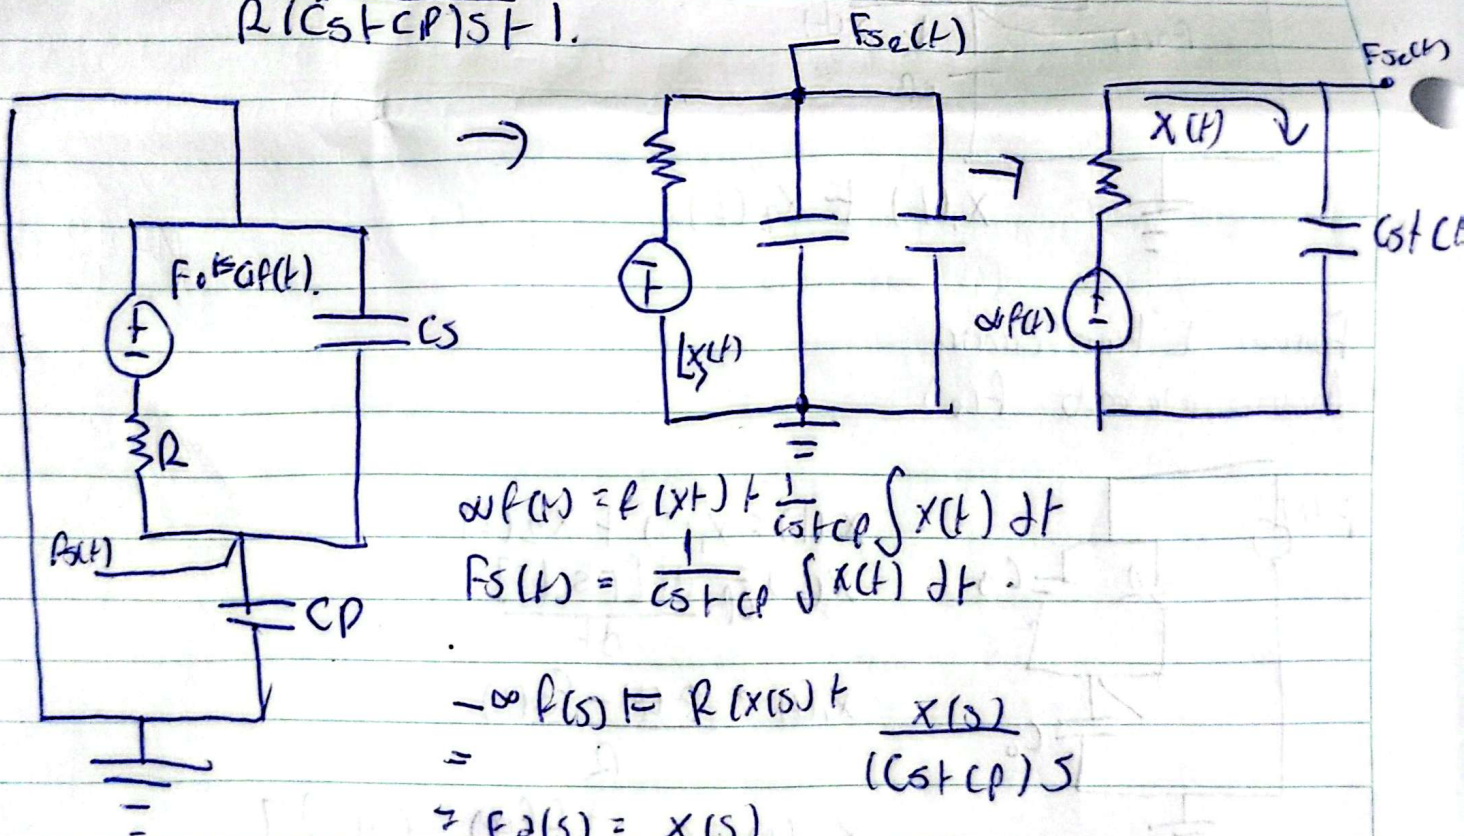 R(Cs+CP)S+1.
Fs2(t)
Fs2(t)
X(t)
F0=αf(t).
+
−
Cs
R
Fs(t)
CP
X(t)
αf(t)
+
−
Cs+CP
αf(t) = R(Xt) + 1/(Cs+CP) ∫ X(t) dt
Fs(t) = 1/(Cs+CP) ∫ X(t) dt.
-αf(s) = R(X(s) + X(s)/((Cs+CP)S)
=
F2(s) = X(s)